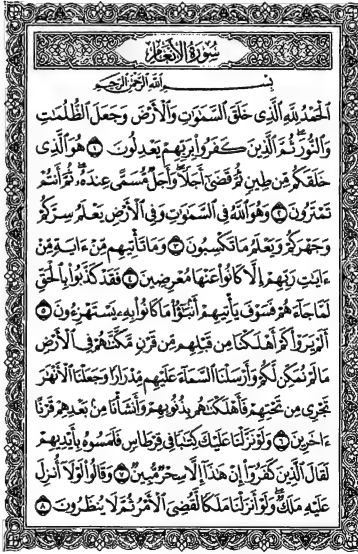 سُورَةُ الأَنْعَامِ
بِسْمِ اللَّهِ الرَّحْمَٰنِ الرَّحِيمِ
ٱلْحَمْدُ لِلَّهِ ٱلَّذِى خَلَقَ ٱلسَّمَٰوَٰتِ وَٱلْأَرْضَ وَجَعَلَ ٱلظُّلُمَٰتِ
وَٱلنُّورَ ثُمَّ ٱلَّذِينَ كَفَرُوا۟ بِرَبِّهِمْ يَعْدِلُونَ ١ هُوَ ٱلَّذِى
خَلَقَكُم مِّن طِينٍ ثُمَّ قَضَىٰٓ أَجَلًا وَأَجَلٌ مُّسَمًّى عِندَهُۥ ثُمَّ أَنتُمْ
تَمْتَرُونَ ٢ وَهُوَ ٱللَّهُ فِى ٱلسَّمَٰوَٰتِ وَفِى ٱلْأَرْضِ يَعْلَمُ سِرَّكُمْ
وَجَهْرَكُمْ وَيَعْلَمُ مَا تَكْسِبُونَ ٣ وَمَا تَأْتِيهِم مِّنْ ءَايَةٍ مِّنْ
ءَايَٰتِ رَبِّهِمْ إِلَّا كَانُوا۟ عَنْهَا مُعْرِضِينَ ٤ فَقَدْ كَذَّبُوا۟ بِٱلْحَقِّ
لَمَّا جَآءَهُمْ فَسَوْفَ يَأْتِيهِمْ أَنۢبَٰٓؤُا۟ مَا كَانُوا۟ بِهِۦ يَسْتَهْزِءُونَ ٥
أَلَمْ يَرَوْا۟ كَمْ أَهْلَكْنَا مِن قَبْلِهِم مِّن قَرْنٍ مَّكَّنَّٰهُمْ فِى ٱلْأَرْضِ
مَا لَمْ نُمَكِّن لَّكُمْ وَأَرْسَلْنَا ٱلسَّمَآءَ عَلَيْهِم مِّدْرَارًا وَجَعَلْنَا ٱلْأَنْهَٰرَ
تَجْرِى مِن تَحْتِهِمْ فَأَهْلَكْنَٰهُم بِذُنُوبِهِمْ وَأَنشَأْنَا مِنۢ بَعْدِهِمْ قَرْنًا
ءَاخَرِينَ ٦ وَلَوْ نَزَّلْنَا عَلَيْكَ كِتَٰبًا فِى قِرْطَاسٍ فَلَمَسُوهُ بِأَيْدِيهِمْ
لَقَالَ ٱلَّذِينَ كَفَرُوٓا۟ إِنْ هَٰذَآ إِلَّا سِحْرٌ مُّبِينٌ ٧ وَقَالُوا۟ لَوْلَآ أُنزِلَ
عَلَيْهِ مَلَكٌ وَلَوْ أَنزَلْنَا مَلَكًا لَّقُضِىَ ٱلْأَمْرُ ثُمَّ لَا يُنظَرُونَ ٨